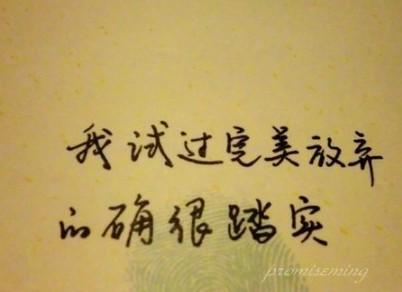 我试过完美放弃
的确很踏实
promiseming